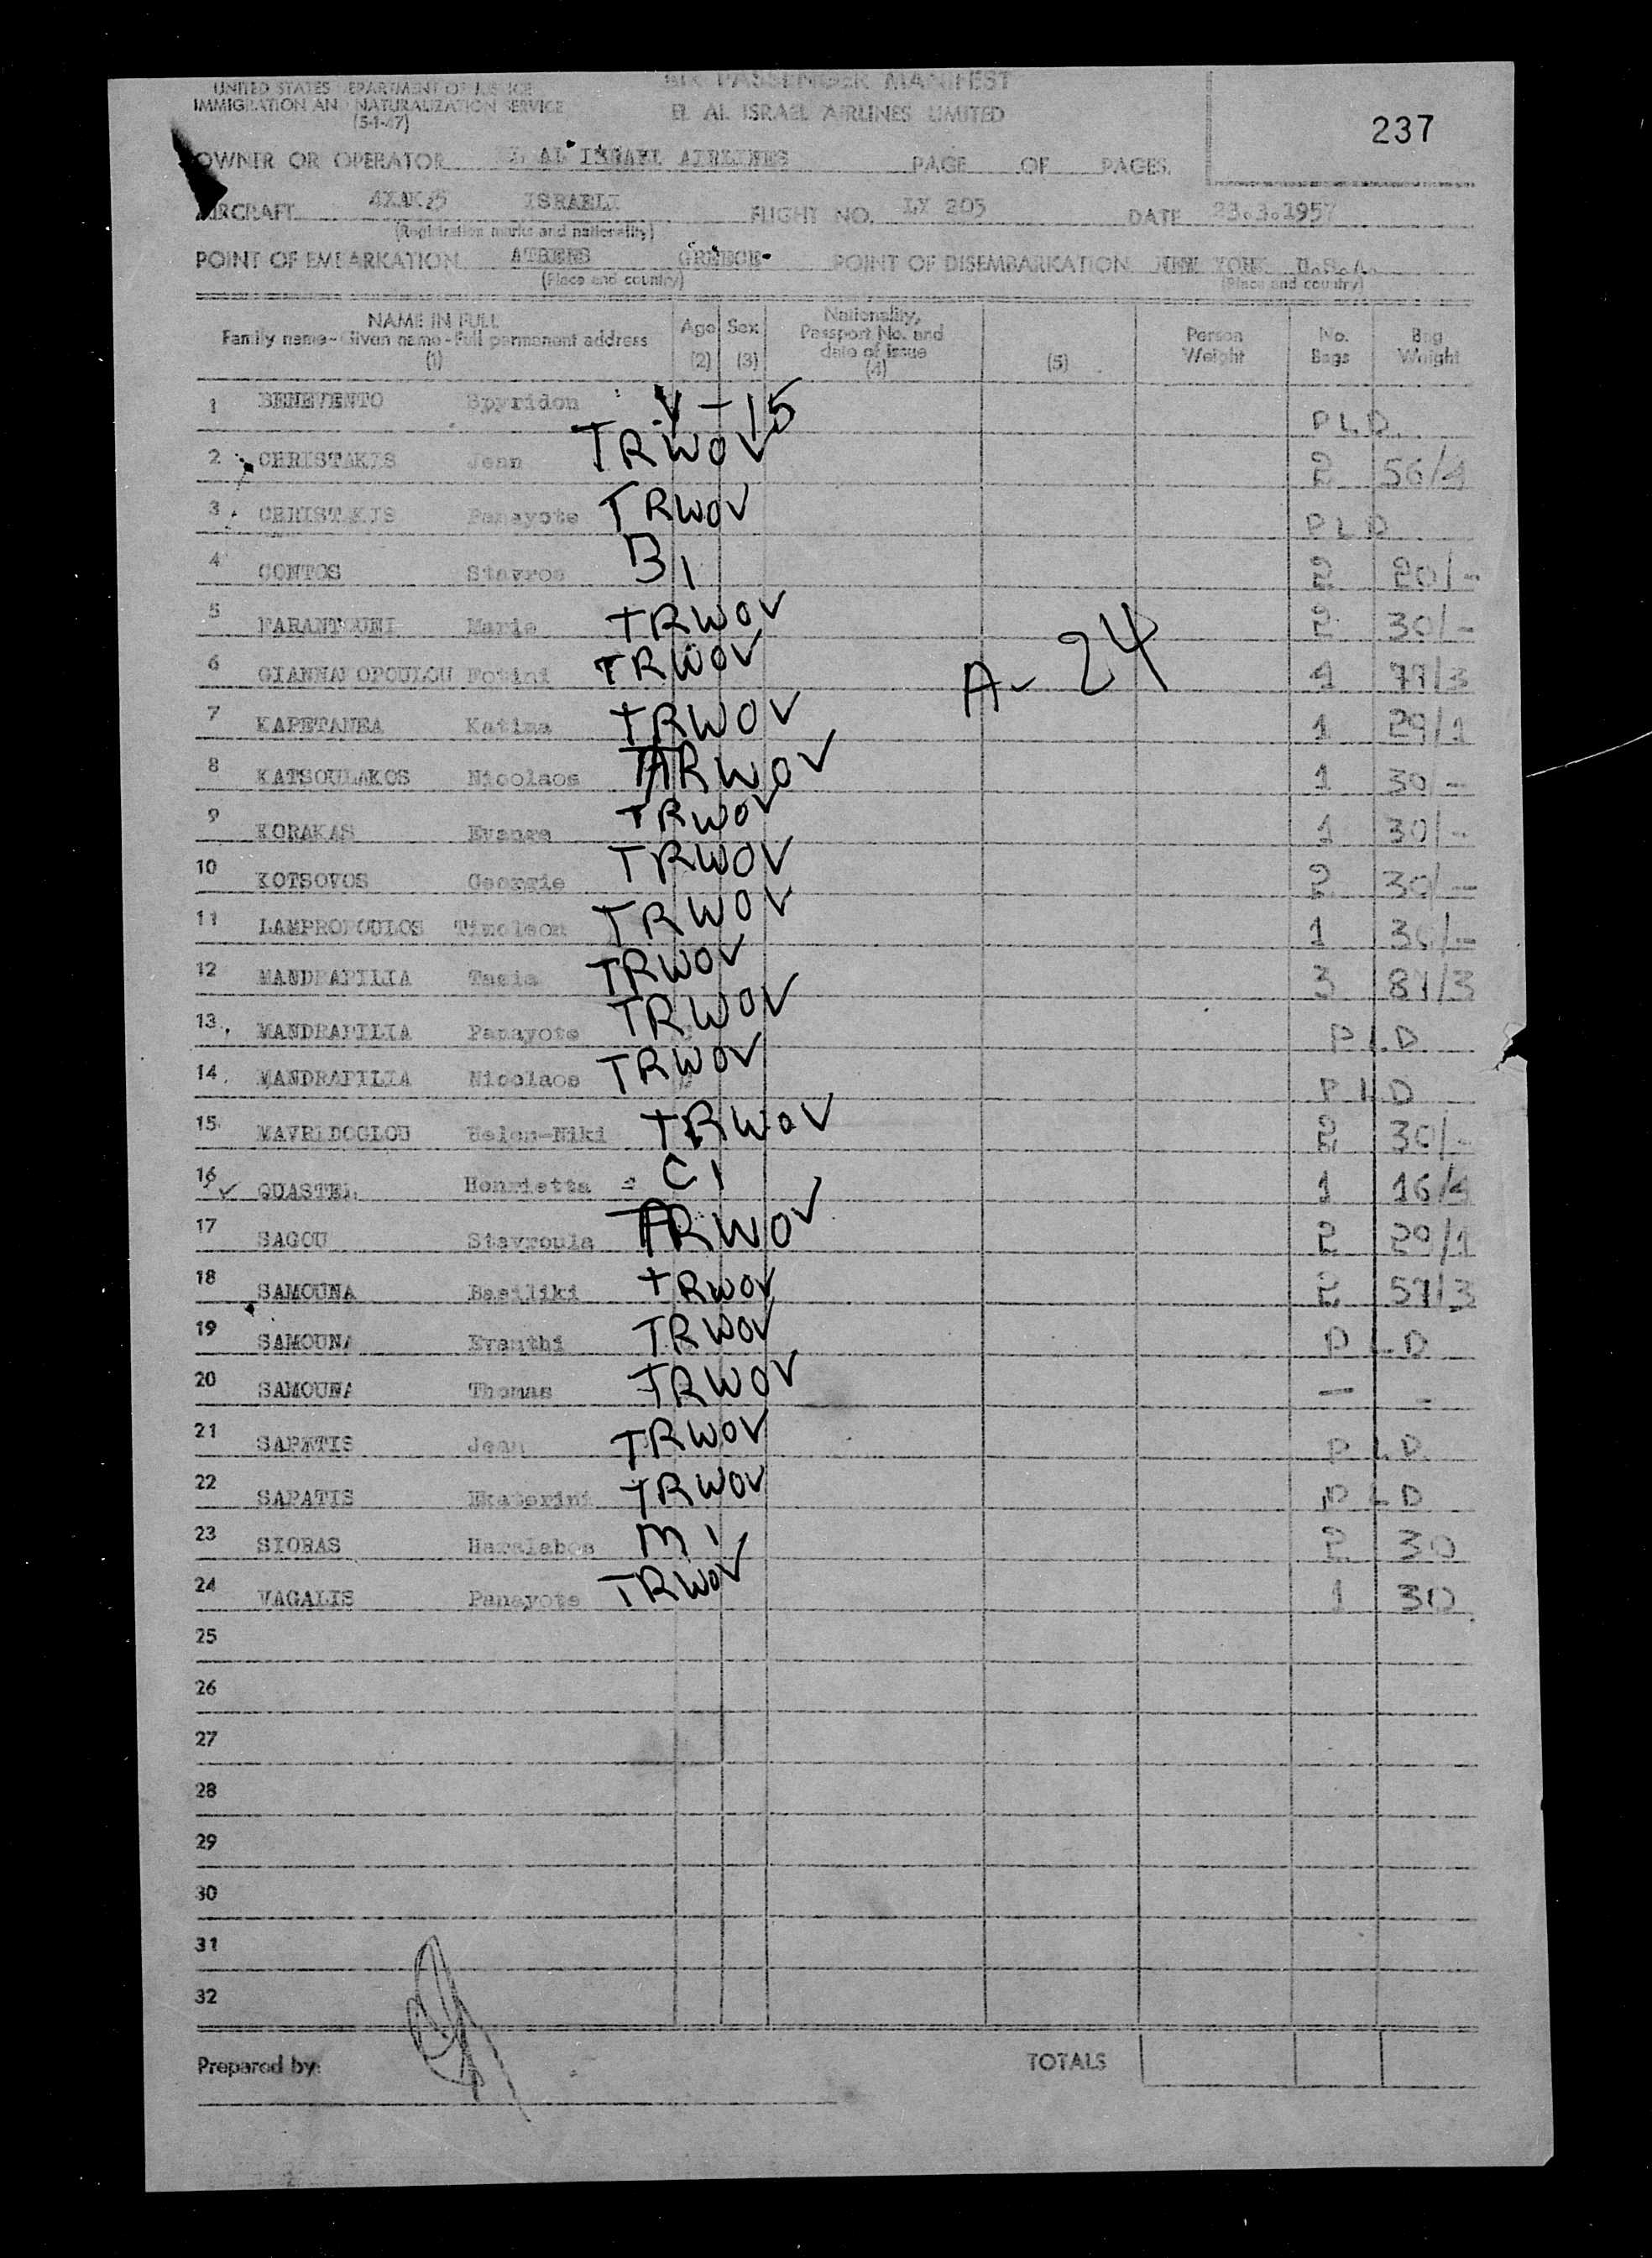 UNITED STATES DEPARTMENT OF JUSTICE
IMMIGRATION AND NATURALIZATION SERVICE
(5-1-47)
AIR PASSENGER MANIFEST
EL AL ISRAEL AIRLINES LIMITED
237
OWNER OR OPERATOR EL AL ISRAEL AIRLINES PAGE OF PAGES.
AIRCRAFT ISRAELI FLIGHT NO. LY 205 DATE 23.3.1957
(Registration marks and nationality)
POINT OF EMBARKATION ATHENS GREECE POINT OF DISEMBARKATION NEW YORK U.S.A.
(Place and country) (Place and country)
NAME IN FULL
Family name - Given name - Full permanent address
(1)
Age (2) Sex (3)
Nationality, Passport No. and date of issue (4)
(5)
Person Weight No. Bags Bag Weight
1 BENEVENTO Spyridon V-15 PLD
2 CHRISTAKIS Jean TRWOV 2 56/4
3 CHRISTAKIS Panayote TRWOV PLD
4 CONTOS Stavros B1 2 20/-
5 FARANTOUNI Marie TRWOV 2 30/-
6 GIANNAKOPOULOU Fotini TRWOV 4 77/3
A-24
7 KAPETANEA Katina TRWOV 1 29/1
8 KATSOULAKOS Nicolaos TRWOV 1 30/-
9 KORAKAS TRWOV 1 30/-
10 KOTSOVOS Georgie TRWOV 2 30/-
11 LAMPROPOULOS Timoleon TRWOV 1 30/-
12 MANDRAPILIA Tasia TRWOV 3 81/3
13 MANDRAPILIA Panayote TRWOV PLD
14 MANDRAPILIA Nicolaos TRWOV PLD
15 MAVRIDOGLOU Helen-Niki TRWOV 2 30/-
16 QUASTEL Henrietta C1 1 16/4
17 SAGOU Stavroula TRWOV 2 29/1
18 SAMOUNA Basiliki TRWOV 2 57/3
19 SAMOUNA Evanthi TRWOV PLD
20 SAMOUNA Thomas TRWOV - -
21 SAPATIS Jean TRWOV PLD
22 SAPATIS Ekaterini TRWOV PLD
23 SIORAS Haralabos M1 2 30
24 VAGALIS Panayote TRWOV 1 30
25
26
27
28
29
30
31
32
Prepared by: TOTALS